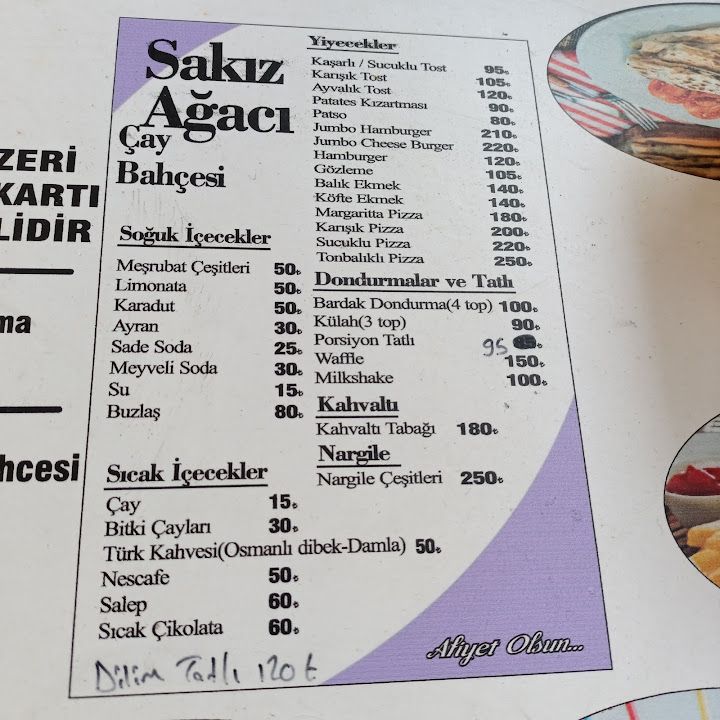 ZERİ
KARTI
LİDİR
ma
hcesi
Sakız
Ağacı
Çay
Bahçesi
Soğuk İçecekler
Meşrubat Çeşitleri 50₺
Limonata 50₺
Karadut 50₺
Ayran 30₺
Sade Soda 25₺
Meyveli Soda 30₺
Su 15₺
Buzlaş 80₺
Sıcak İçecekler
Çay 15₺
Bitki Çayları 30₺
Türk Kahvesi(Osmanlı dibek-Damla) 50₺
Nescafe 50₺
Salep 60₺
Sıcak Çikolata 60₺
Dilim Tatlı 120 ₺
Yiyecekler
Kaşarlı / Sucuklu Tost 95₺
Karışık Tost 105₺
Ayvalık Tost 120₺
Patates Kızartması 90₺
Patso 80₺
Jumbo Hamburger 210₺
Jumbo Cheese Burger 220₺
Hamburger 120₺
Gözleme 105₺
Balık Ekmek 140₺
Köfte Ekmek 140₺
Margaritta Pizza 180₺
Karışık Pizza 200₺
Sucuklu Pizza 220₺
Tonbalıklı Pizza 250₺
Dondurmalar ve Tatlı
Bardak Dondurma(4 top) 100₺
Külah(3 top) 90₺
Porsiyon Tatlı 95
Waffle 150₺
Milkshake 100₺
Kahvaltı
Kahvaltı Tabağı 180₺
Nargile
Nargile Çeşitleri 250₺
Afiyet Olsun...